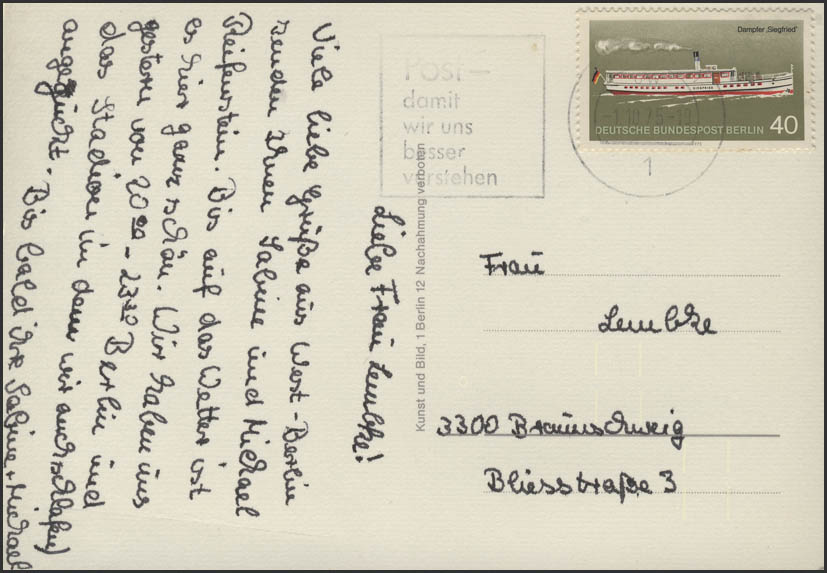 Liebe Frau Lembke!
Viele liebe Grüße aus West-Berlin
senden Ihnen Sabine und Michael
Reifenstein. Bis auf das Wetter ist
es hier ganz schön. Wir haben uns
gestern von 20⁰⁰ - 23³⁰ Berlin und
das Stadion in dem wir auch schlafen)
angeguckt. Bis bald ihre Sabine + Michael
Kunst und Bild, 1 Berlin 12 Nachahmung verboten
Post-
damit
wir uns
besser
verstehen
Dampfer „Siegfried"
SIEGFRIED
DEUTSCHE BUNDESPOST BERLIN 40
-1.10.75-19
1
Frau
Lembke
3300 Braunschweig
Bliesstraße 3